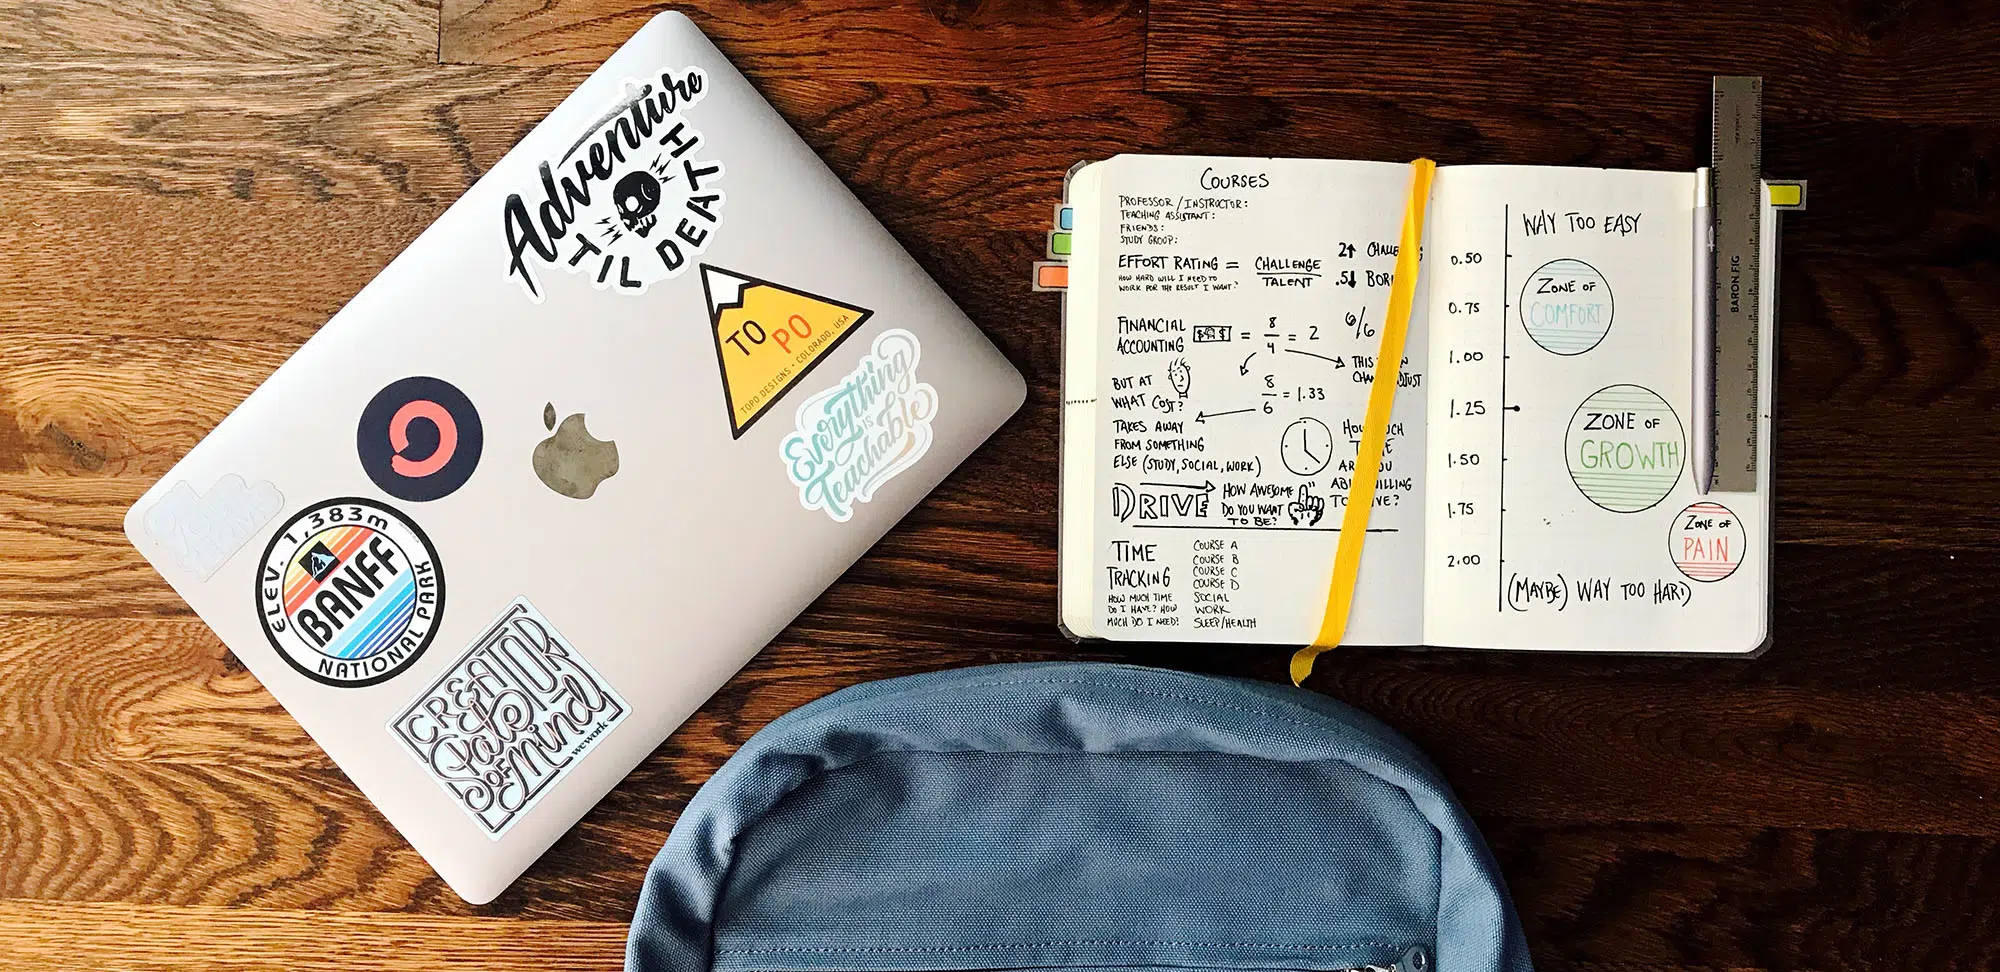 Adventure
TIL DEATH
TO PO
TOPO DESIGNS • COLORADO, USA
Everything
IS
Teachable
ELEV. 1,383m
BANFF
NATIONAL PARK
CREATOR
State
OF
Mind
wework
COURSES
PROFESSOR / INSTRUCTOR:
TEACHING ASSISTANT:
FRIENDS:
STUDY GROUP:
EFFORT RATING = CHALLENGE
TALENT
HOW HARD WILL I NEED TO
WORK FOR THE RESULT I WANT?
2↑
.5↓
FINANCIAL
ACCOUNTING
$ $ = 8/4 = 2
6/6
THIS
8/6 = 1.33
BUT AT
WHAT COST?
TAKES AWAY
FROM SOMETHING
ELSE (STUDY, SOCIAL, WORK)
DRIVE
HOW AWESOME
DO YOU WANT
TO BE?
TIME
TRACKING
HOW MUCH TIME
DO I HAVE? HOW
MUCH DO I NEED?
COURSE A
COURSE B
COURSE C
COURSE D
SOCIAL
WORK
SLEEP/HEALTH
WAY TOO EASY
0.50
0.75
1.00
1.25
1.50
1.75
2.00
ZONE OF
COMFORT
ZONE OF
GROWTH
ZONE OF
PAIN
(MAYBE) WAY TOO HARD
BARON FIG